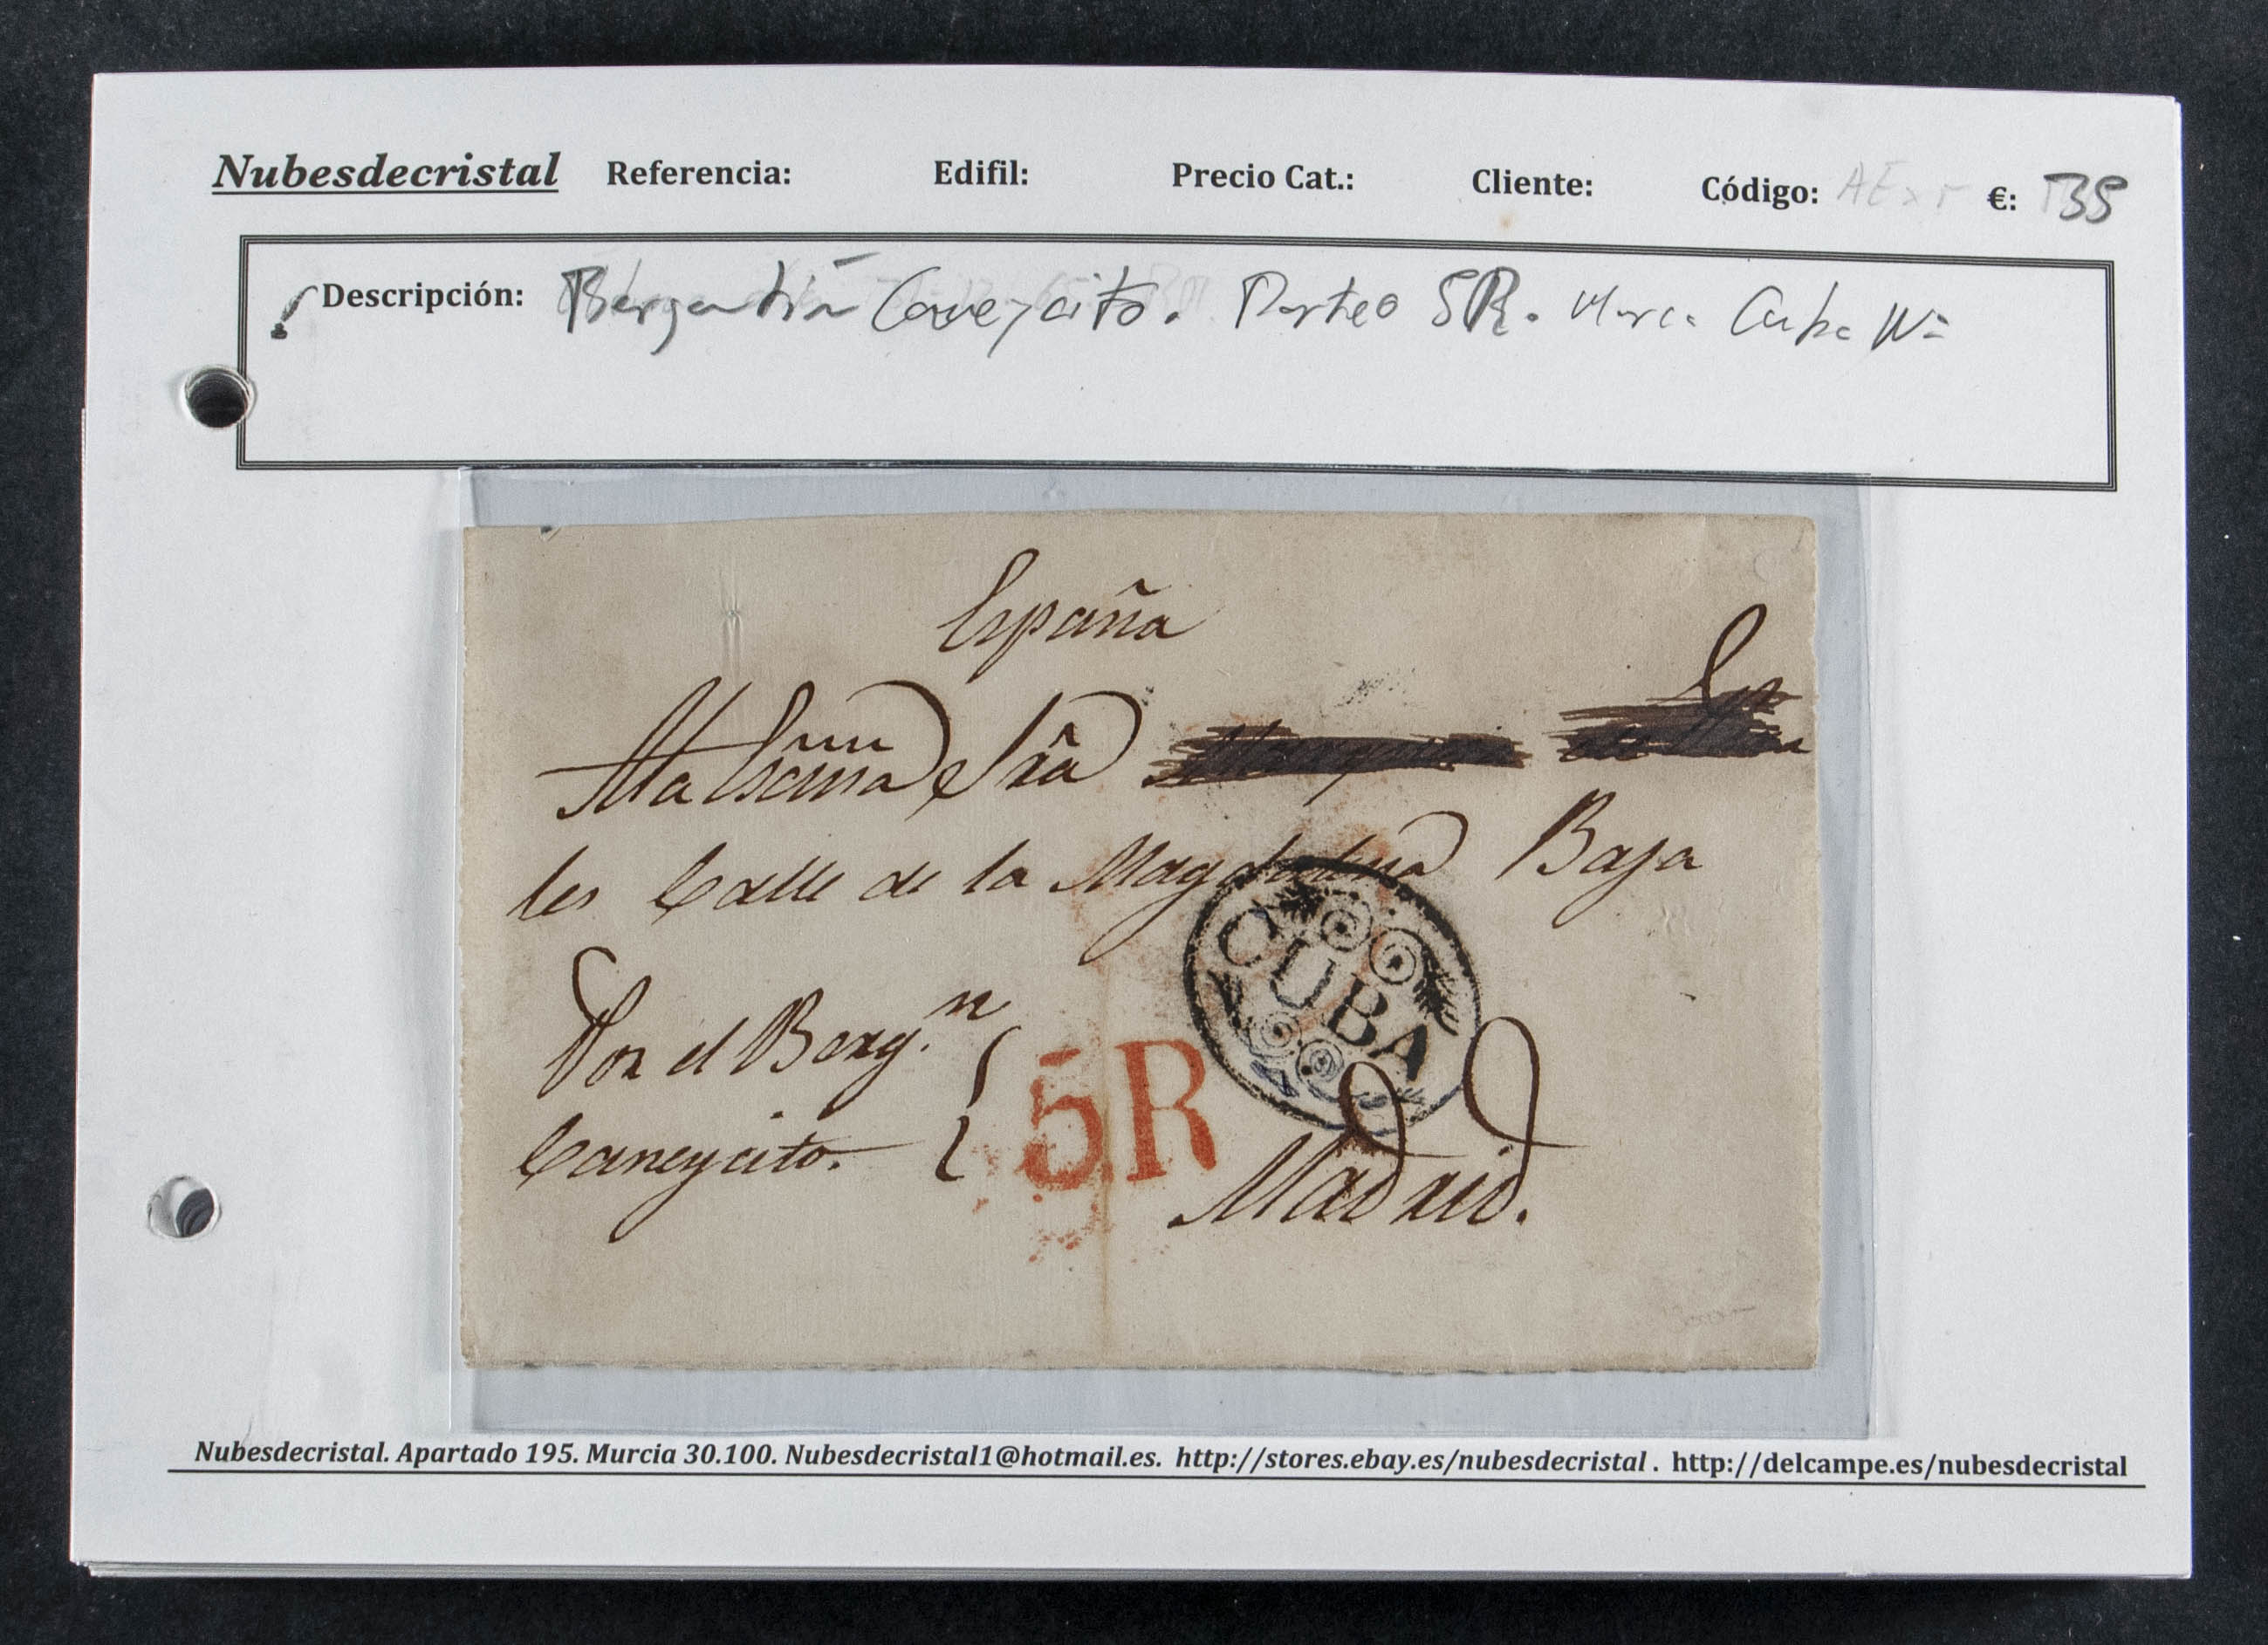 Nubesdecristal Referencia: Edifil: Precio Cat.: Cliente: Código: €: 35
Descripción: Bergantín Caneycito. Porteo 5R. Marca Cuba Nº
España
A la Exma Sra
les Calle de la Magdalena Baja
CUBA
Por el Bergn
Caneycito.
5R
Madrid.
Nubesdecristal. Apartado 195. Murcia 30.100. Nubesdecristal1@hotmail.es. http://stores.ebay.es/nubesdecristal . http://delcampe.es/nubesdecristal